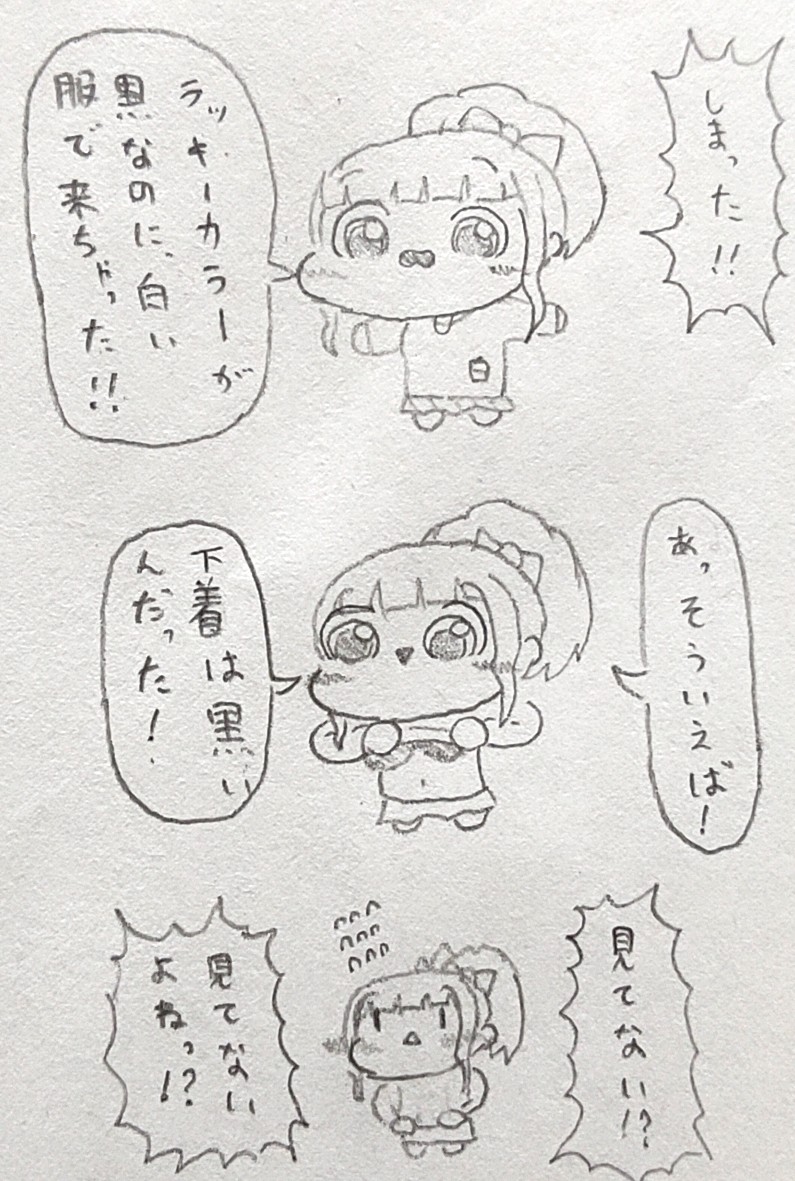 しまった!!
ラッキーカラーが
黒なのに、白い
服で来ちゃった!!
白
あっそういえば!
下着は黒い
んだった!
見てない!?
見てない
よねっ!?